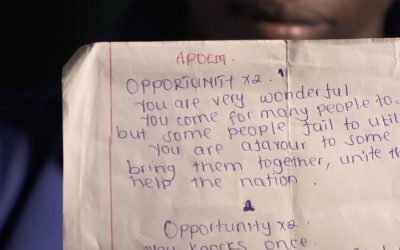 APOEM.
OPPORTUNITY x2.
You are very wonderful
You come for many people to
but some people fail to
You are afavour to some
bring them together, unite
help the nation.
Opportunity x2.
knocks once